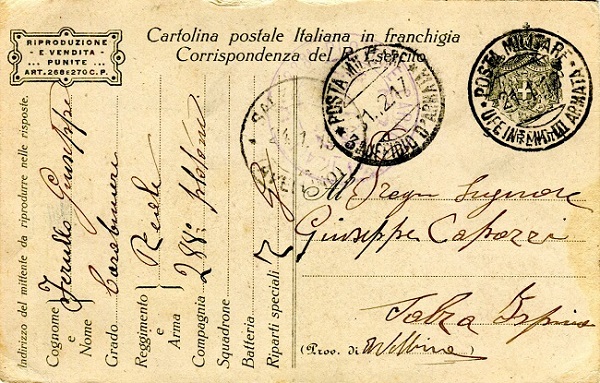 RIPRODUZIONE
E VENDITA
... PUNITE ...
ART. 268 E 270 C. P.
Cartolina postale Italiana in franchigia
Corrispondenza del R. Esercito
POSTA MILITARE
21.2.17
3ª UFFICIO D'ARMATA
POSTA MILITARE
Indirizzo del mittente da riprodurre nelle risposte.
Cognome e Nome Giuseppe
Grado Carabiniere
Reggimento e Arma Reale
Compagnia 288ª plotone
Squadrone
Batteria
Riparti speciali
Al Pregn Signore
Giuseppe Capozzi
(Prov. di Avellino)